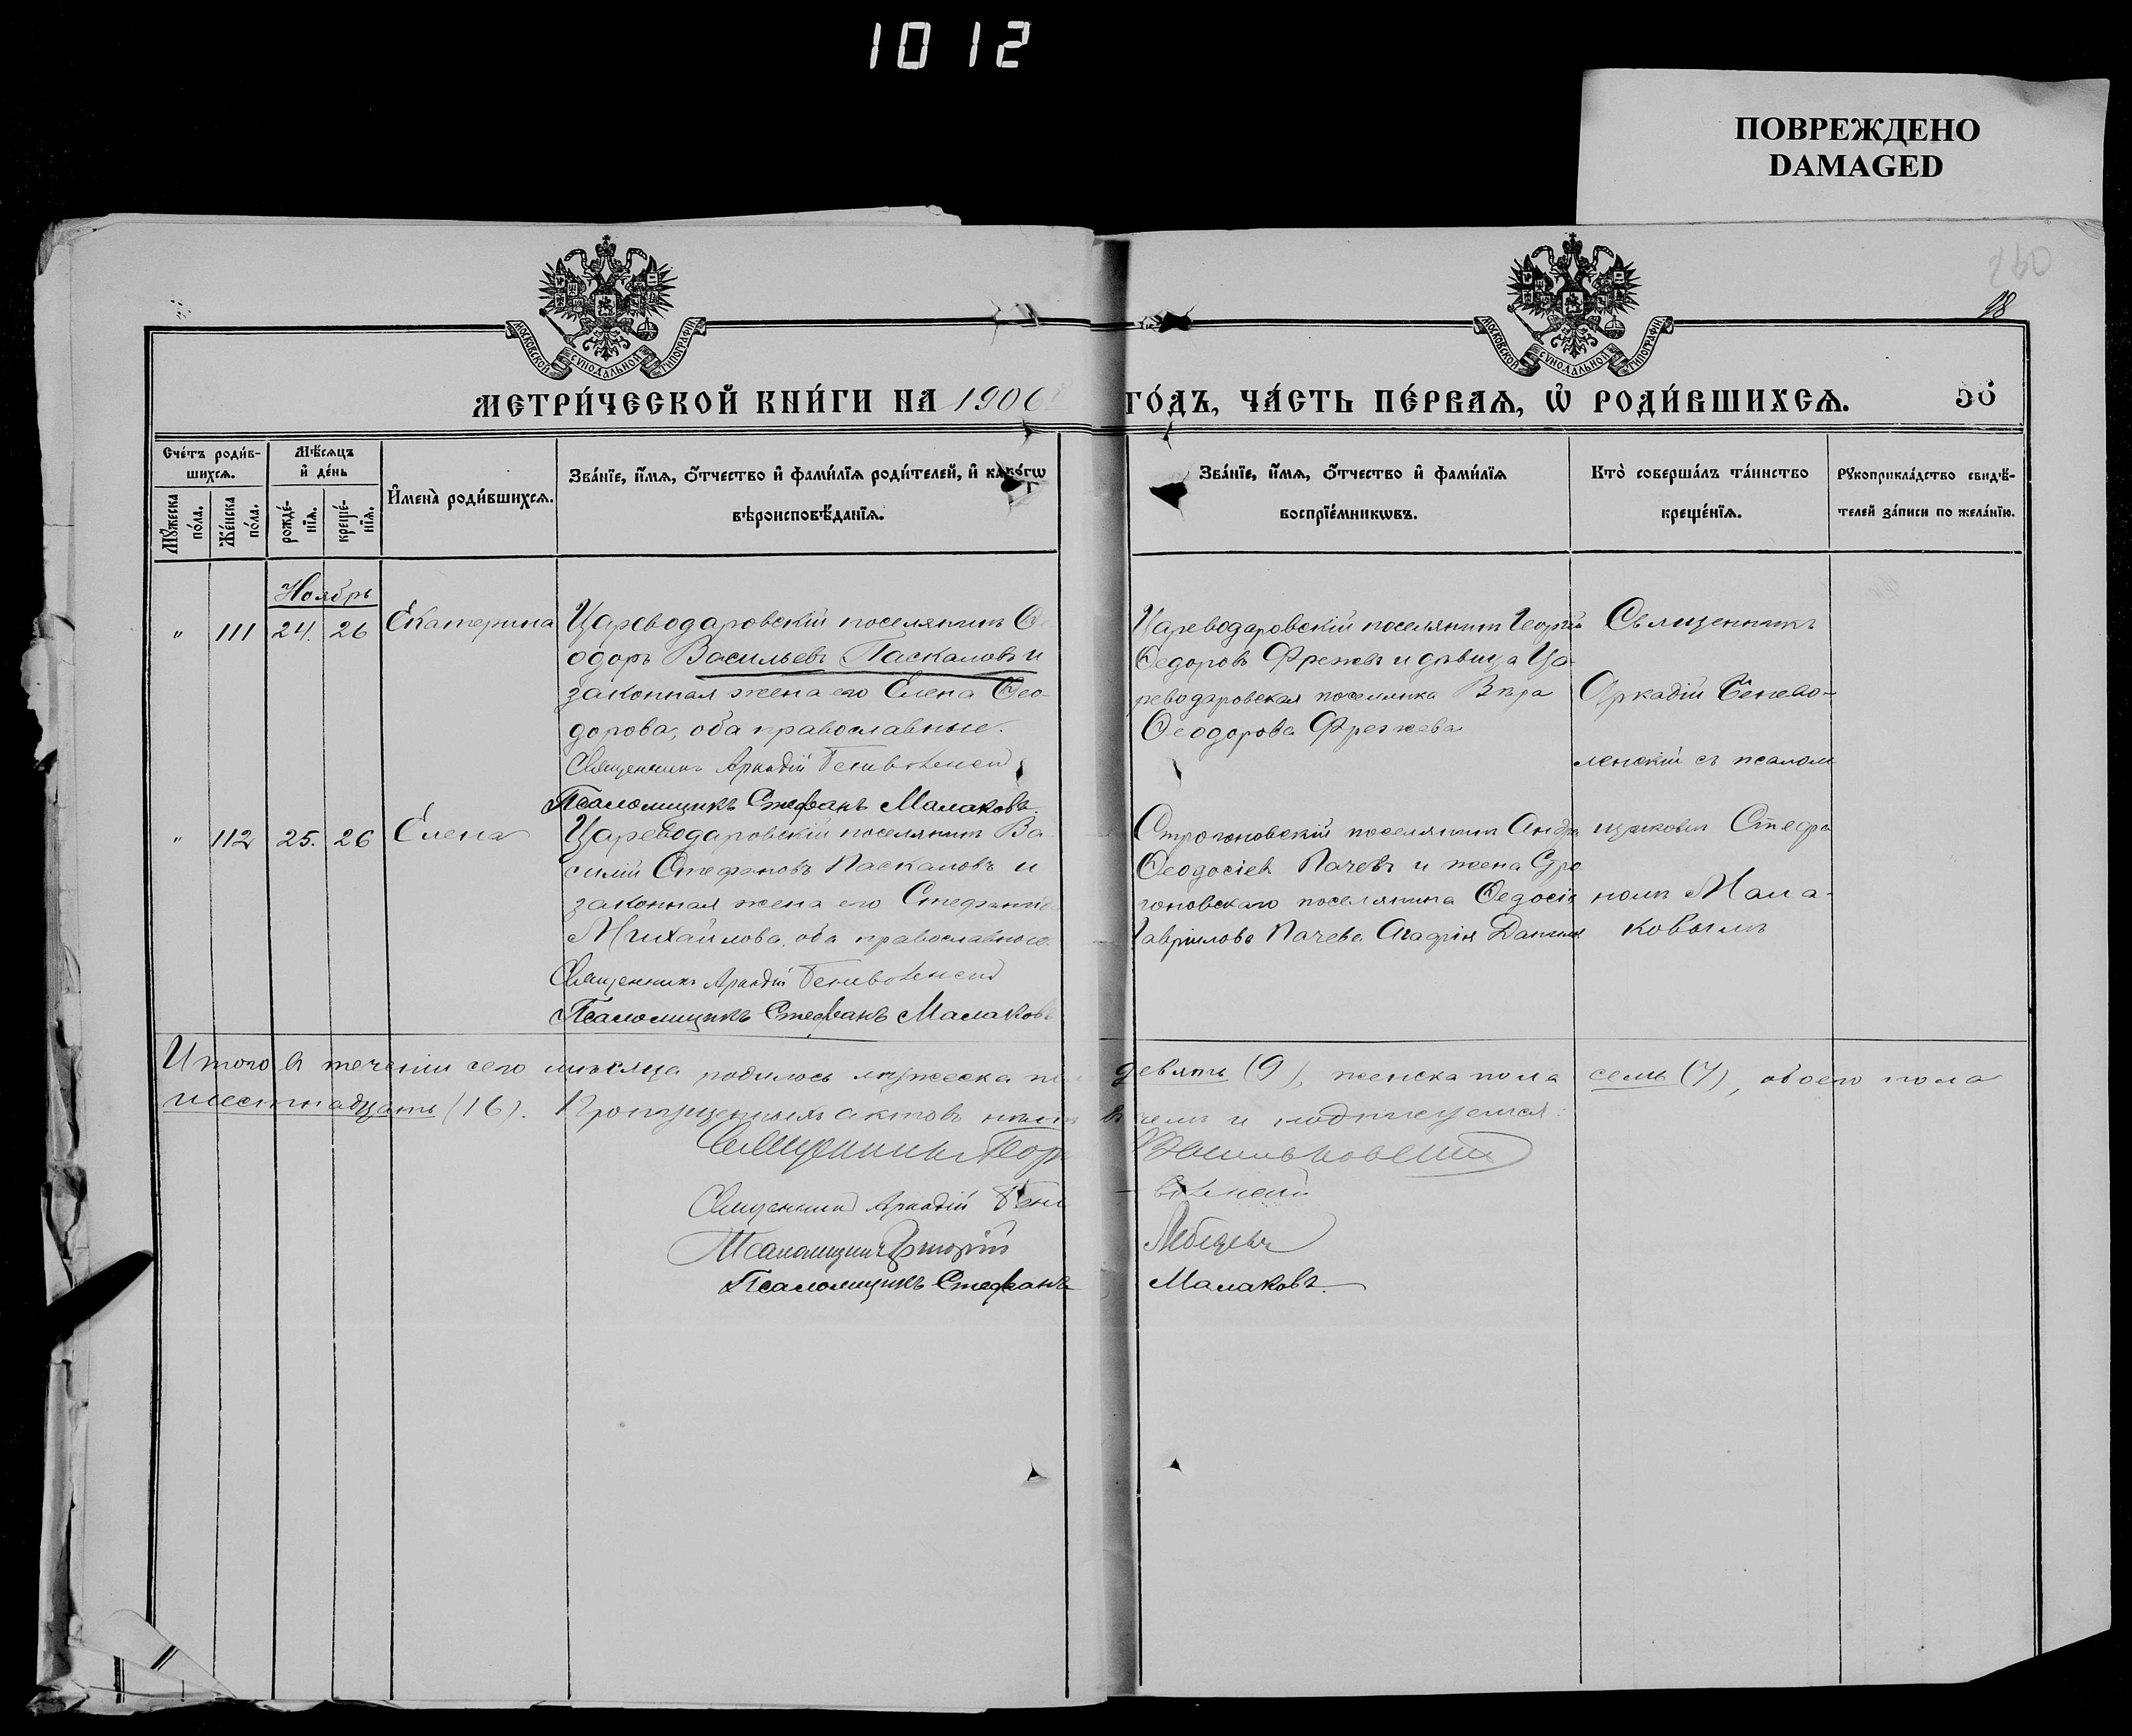 1012
ПОВРЕЖДЕНО
DAMAGED
260
98
МОСКОВСКОЙ СѴНОДАЛЬНОЙ ТИПОГРАФІИ
МОСКОВСКОЙ СѴНОДАЛЬНОЙ ТИПОГРАФІИ
МЕТРИ́ЧЕСКОЙ КНИ́ГИ НА 1906 ГО́ДЪ, ЧА́СТЬ ПЕ́РВАѦ, Ѡ҆ РОДИ́ВШИХСѦ.
Сче́тъ роди́в-
шихсѧ.
Мꙋ́жеска
по́ла.
Же́нска
по́ла.
Мѣ́сѧцъ
и҆ де́нь
рожде́-
нїѧ.
креще́-
нїѧ.
И҆мена̀ роди́вшихсѧ.
Зва́нїе, и҆́мѧ, ѻ҆́тчество и҆ фами́лїѧ роди́телей, и҆ како́гѡ
вѣроисповѣ́данїѧ.
Зва́нїе, и҆́мѧ, ѻ҆́тчество и҆ фами́лїѧ
воспрїе́мникѡвъ.
Кто̀ соверша́лъ та́инство
креще́нїѧ.
Рꙋкоприкла́дство свидѣ́-
телей за́писи по жела́нїю.
Ноябрь
" 111 24. 26 Екатерина
Цареводаровскій поселянинъ Ѳе
одоръ Васильевъ Паскаловъ и
законная жена его Елена Ѳео-
дорова, оба православные.
Священникъ Аркадій
Псаломщикъ Стефанъ Малаковъ.
Цареводаровскій поселянинъ Георгій
Ѳедоровъ Фрежевъ и дѣвица Ца-
реводаровская поселянка Вѣра
Ѳеодорова Фрежева
Священникъ
Аркадій Бенево-
ленскій съ псалом
щикомъ Стефа
номъ Мала-
ковымъ
" 112 25. 26 Елена
Цареводаровскій поселянинъ Ва
силій Стефановъ Паскаловъ и
законная жена его Стефанида
Михайлова, оба православные.
Священникъ Аркадій
Псаломщикъ Стефанъ Малаковъ
Строгоновскій поселянинъ Андре
Ѳеодосіевъ Пачевъ и жена Стро
гоновскаго поселянина Ѳедосія
Гаврилова Пачева Агафія Данил
Итого въ теченіи сего мѣсяца родилось мужеска по девять (9), женска пола семь (7), обоего пола
шестнадцать (16). Пропущенныхъ актовъ нѣтъ въ чемъ и подписуемся:
Священникъ Васильковскій
Священникъ Аркадій
Псаломщикъ Лебедевъ
Псаломщикъ Стефанъ Малаковъ.